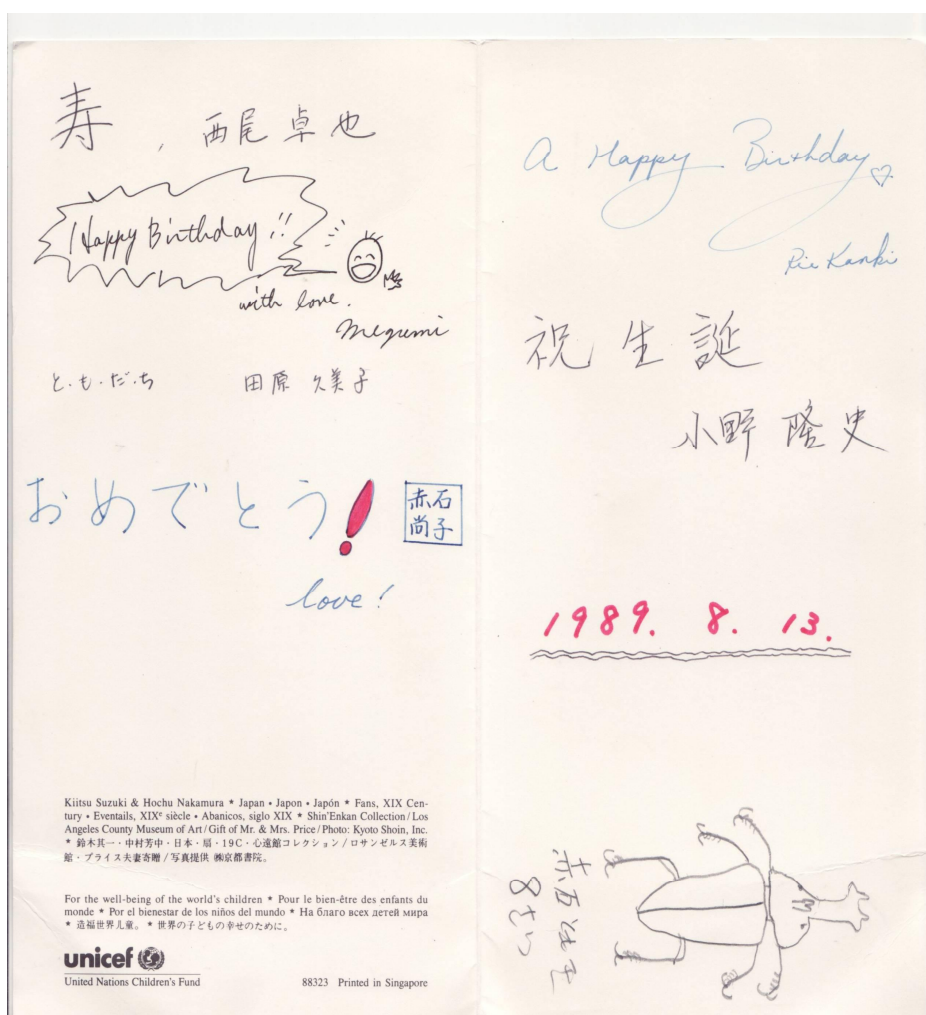 寿, 西尾卓也
Happy Birthday!!
with love.
Megumi
と・も・だ・ち 田原 久美子
おめでとう!
赤石
尚子
love!
Kiitsu Suzuki & Hochu Nakamura * Japan • Japon • Japón * Fans, XIX Cen-
tury • Eventails, XIXᵉ siècle • Abanicos, siglo XIX * Shin'Enkan Collection/Los
Angeles County Museum of Art/Gift of Mr. & Mrs. Price/Photo: Kyoto Shoin, Inc.
* 鈴木其一・中村芳中・日本・扇・19C・心遠館コレクション/ロサンゼルス美術
館・プライス夫妻寄贈/写真提供 ㈱京都書院。
For the well-being of the world's children * Pour le bien-être des enfants du
monde * Por el bienestar de los niños del mundo * На благо всех детей мира
* 造福世界儿童。 * 世界の子どもの幸せのために。
unicef
United Nations Children's Fund
88323 Printed in Singapore
A Happy Birthday
Rie Kanki
祝生誕
小野 隆史
1989. 8. 13.
8さい